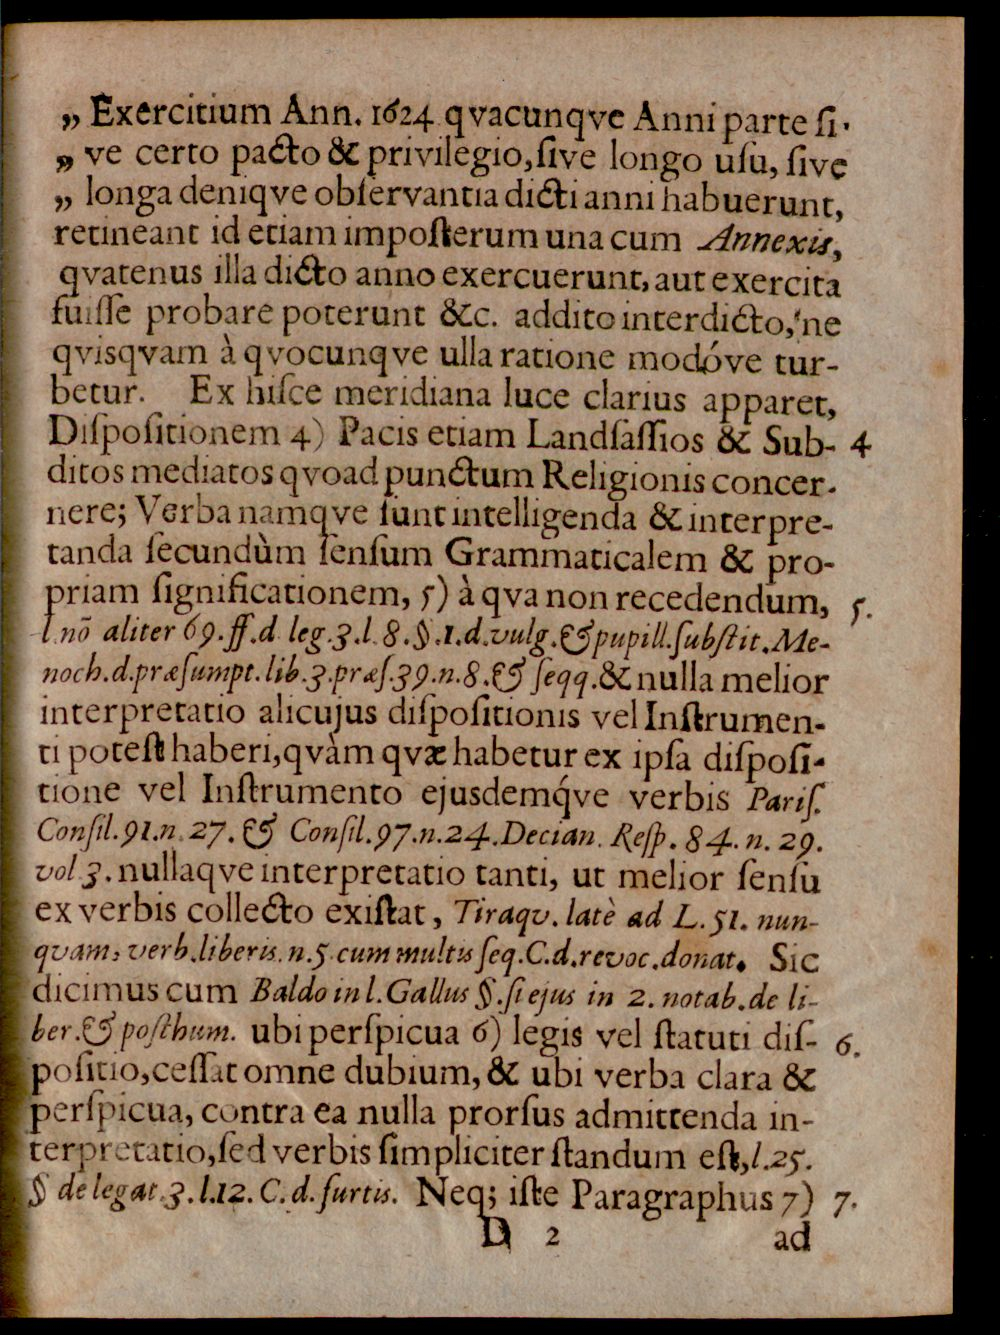 „ Exercitium Ann. 1624 qvacunqve Anni parte ſi-
„ ve certo pacto & privilegio, ſive longo uſu, ſive
„ longa deniqve obſervantia dicti anni habuerunt,
retineant id etiam impoſterum una cum Annexis,
qvatenus illa dicto anno exercuerunt, aut exercita
fuiſſe probare poterunt &c. addito interdicto, ne
qvisqvam à qvocunqve ulla ratione modóve tur-
betur. Ex hiſce meridiana luce clarius apparet,
Diſpoſitionem 4) Pacis etiam Landſaſſios & Sub- 4
ditos mediatos qvoad punctum Religionis concer-
nere; Verba namqve ſunt intelligenda & interpre-
tanda ſecundùm ſenſum Grammaticalem & pro-
priam ſignificationem, 5) à qva non recedendum, 5.
l. nō aliter 69. ff. d. leg. 3. l. 8. §. 1. d. vulg. & pupill. ſubſtit. Me-
noch. d. præſumpt. lib. 3. præſ. 39. n. 8. & ſeqq. & nulla melior
interpretatio alicujus diſpoſitionis vel Inſtrumen-
ti poteſt haberi, qvàm qvæ habetur ex ipſa diſpoſi-
tione vel Inſtrumento ejusdemq́ve verbis Pariſ.
Conſil. 91. n. 27. & Conſil. 97. n. 24. Decian. Reſp. 84. n. 29.
vol 3. nullaqve interpretatio tanti, ut melior ſenſu
ex verbis collecto exiſtat, Tiraqv. latè ad L. 51. nun-
qvam, verb. liberis. n. 5. cum multis ſeq. C. d. revoc. donat. Sic
dicimus cum Baldo in l. Gallus §. ſi ejus in 2. notab. de li-
ber. & poſthum. ubi perſpicua 6) legis vel ſtatuti diſ- 6.
poſitio, ceſſat omne dubium, & ubi verba clara &
perſpicua, contra ea nulla prorſus admittenda in-
terpretatio, ſed verbis ſimpliciter ſtandum eſt, l. 25.
§ de legat. 3. l. 12. C. d. furtis. Neq; iſte Paragraphus 7) 7.
D 2 ad